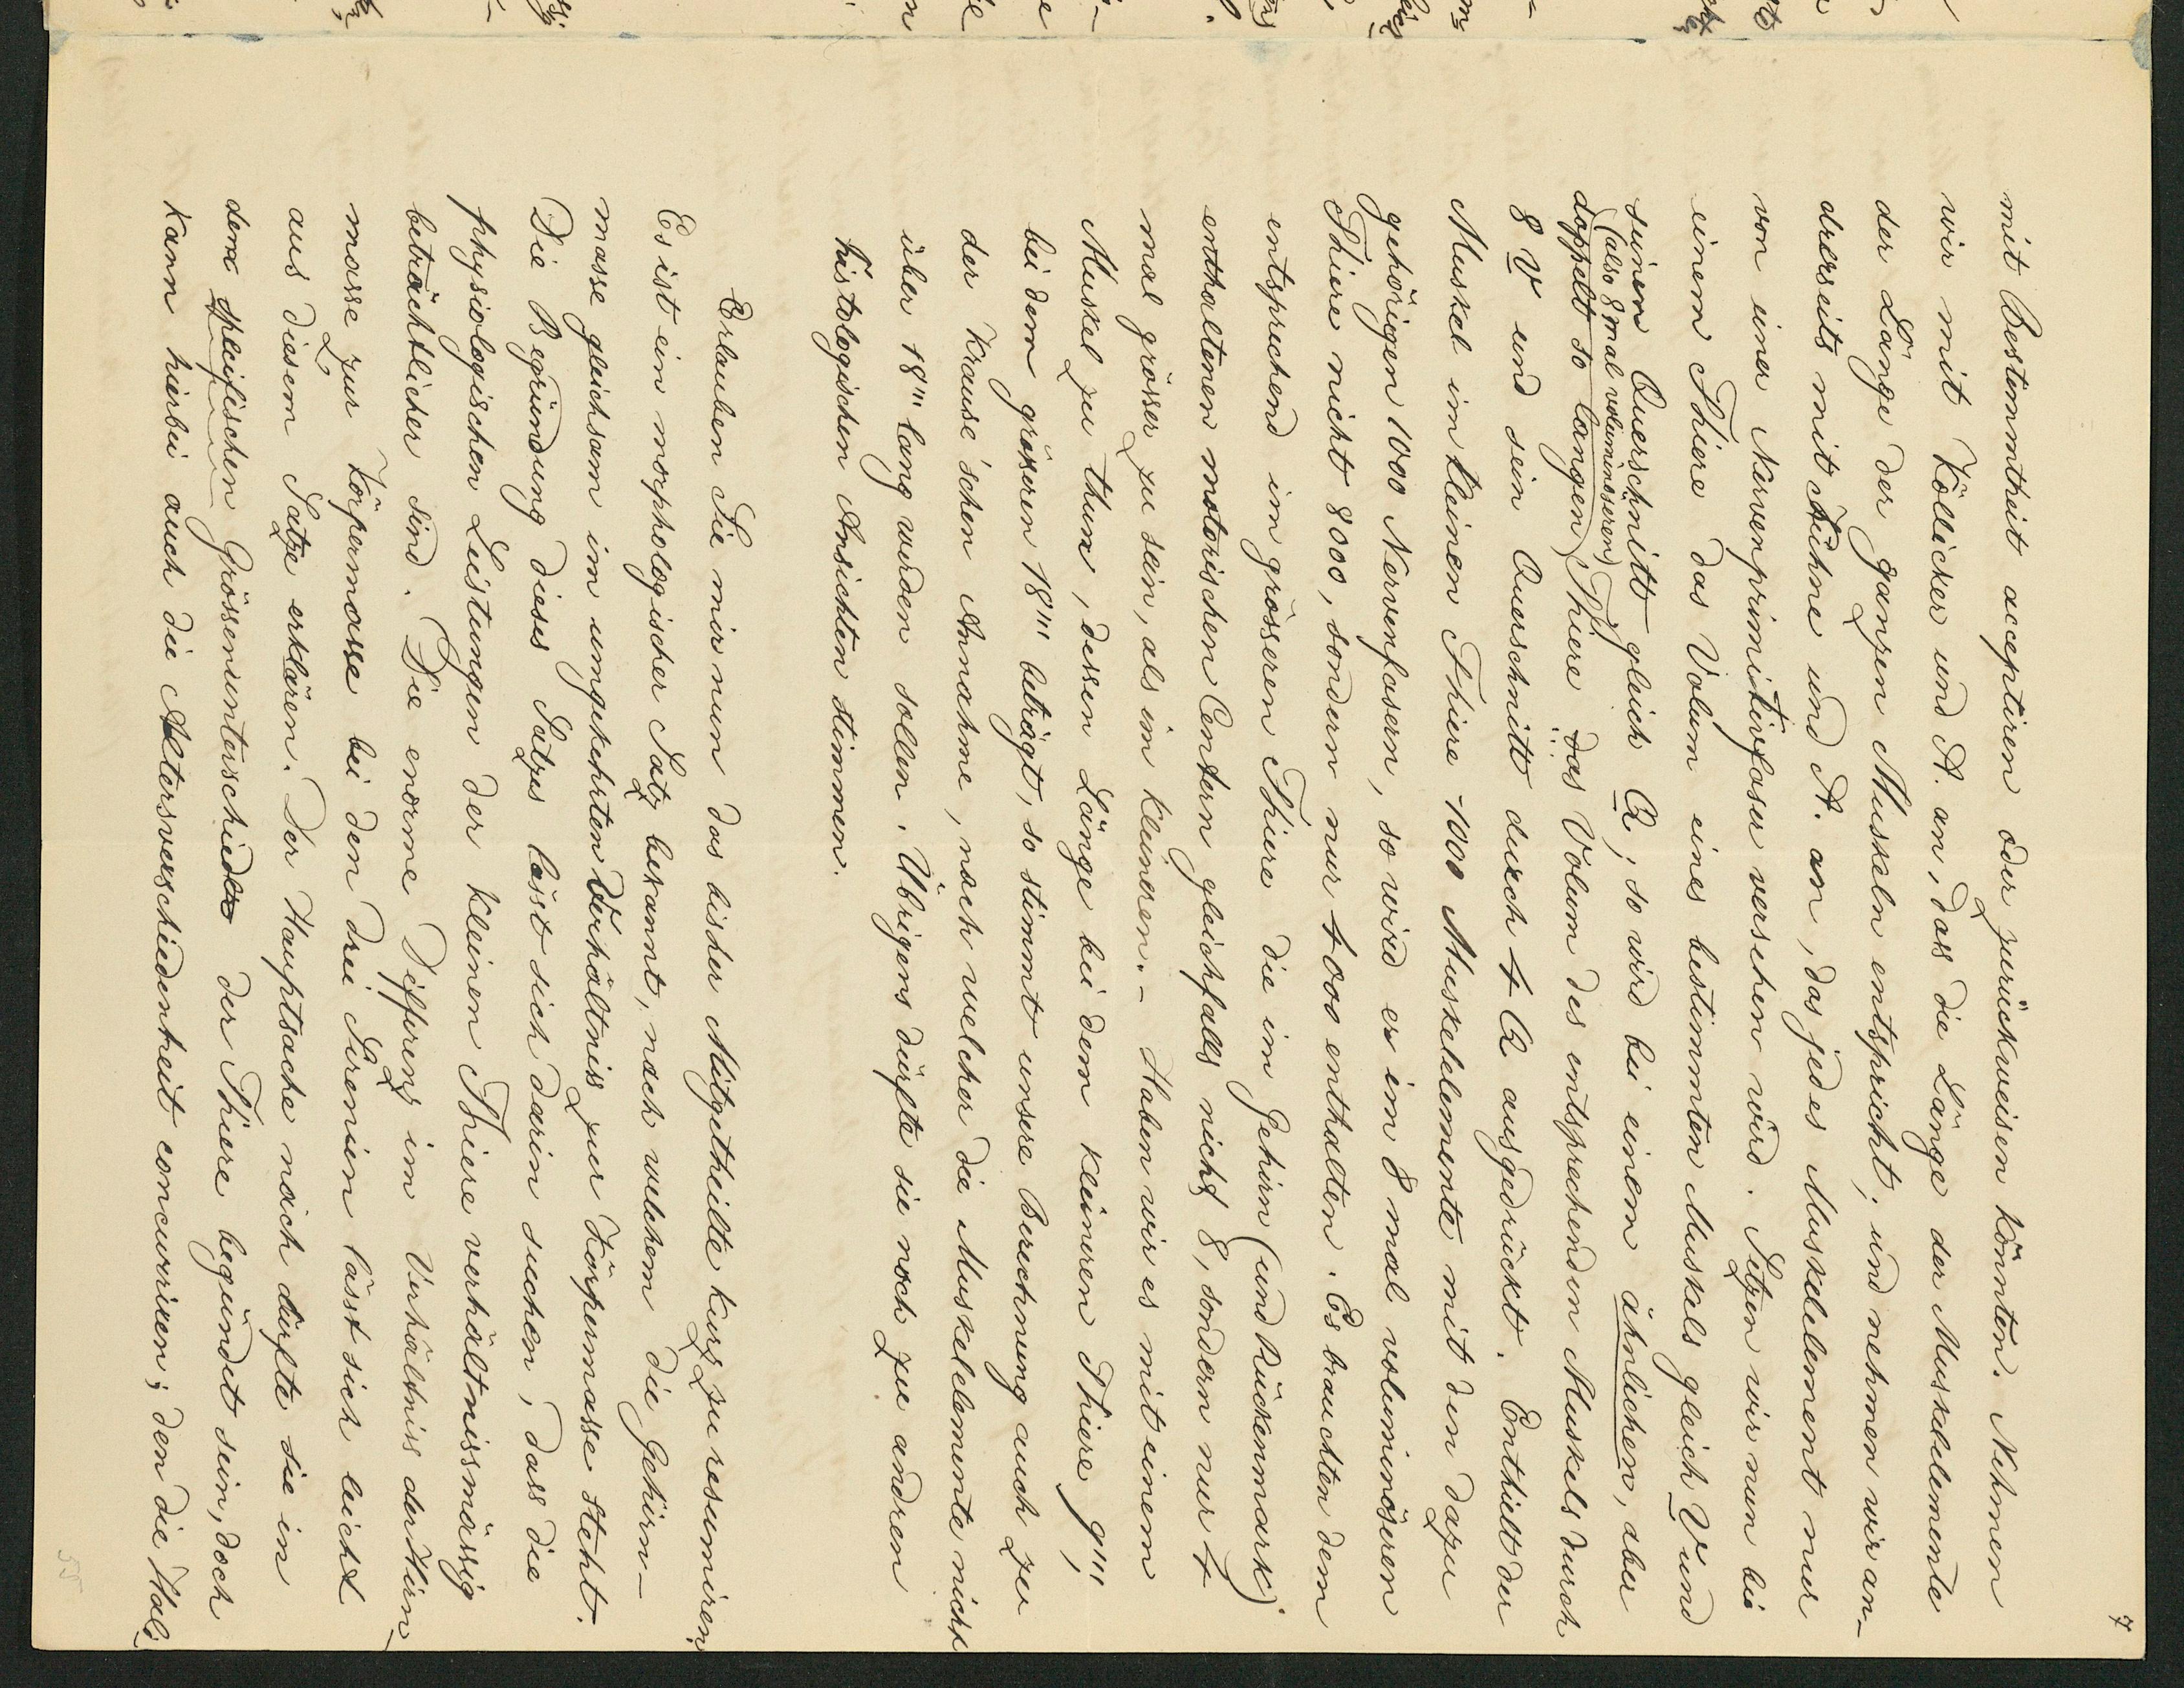 7
mit Bestimmtheit acceptiren oder zurückweisen könnten. Nehmen
wir mit Kölliker und A. an, dass die Länge der Muskelemente
der Länge der ganzen Muskeln entspricht, und nehmen wir an-
drerseits mit Kühne und A. an, das jedes Muskelelement nur
von einer Nervenprimitivfaser versehen wird. Setzen wir nun bei
einem Thiere das Volum eines bestimmten Muskels gleich V und
seinen Querschnitt gleich Q, so wird bei einem ähnlichen, aber
(also 8 mal voluminöseren)
doppelt so langen Thiere das Volum des entsprechenden Muskels durch
8 V und sein Querschnitt durch 4 Q ausgedrückt. Enthielt der
Muskel im kleinen Thiere 1000 Muskelelemente mit den dazu
gehörigen 1000 Nervenfasern, so wird er im 8 mal voluminöseren
Thiere nicht 8000, sondern nur 4000 enthalten. Es brauchten dem
entsprechend im grösseren Thiere die im Gehirn (und Rückenmark)
enthaltenen motorischen Centern gleichfalls nicht 8, sondern nur 4
mal grösser zu sein, als im kleineren. - Haben wir es mit einem
Muskel zu thun, dessen Länge bei dem kleineren Thiere 9''',
bei dem grösseren 18''' beträgt, so stimmt unsere Berechnung auch zu
der Krause'schen Annahme, nach welcher die Muskelelemente nicht
über 18''' lang werden sollen. Übrigens dürfte sie noch zu andren
histologischen Ansichten stimmen.
Erlauben Sie mir nun das bisher Mitgetheilte kurz zu resumiren.
Es ist ein morphologischer Satz bekannt, nach welchem die Gehirn-
masse gleichsam im umgekehrten Verhältniss zur Körpermasse steht.
Die Begründung dieses Satzes lässt sich darin suchen, dass die
physiologischen Leistungen der kleinen Thiere verhältnissmässig
beträchtlicher sind. Die enorme Differenz im Verhältniss der Hirn-
masse zur Körpermasse bei den drei Sirenien lässt sich leicht
aus diesem Satze erklären. Der Hauptsache nach dürfte sie in
dem speifischen Grössenunterschiede der Thiere begündet sein, doch
kann hierbei auch die Altersverschiedenheit concurriren; den die Hal-
55